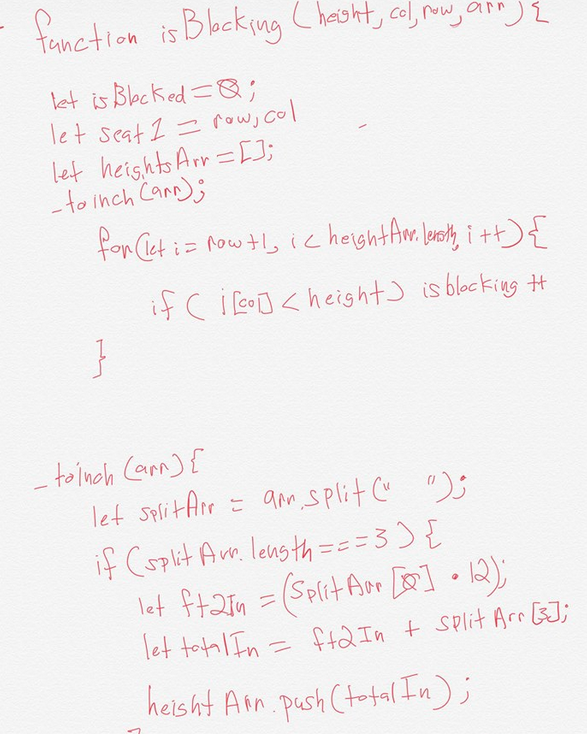 function isBlocking (height, col, row, arr) {
let isBlocked = 0;
let seat1 = row, col
let heightsArr = [];
_toinch (arr);
for (let i = row+1, i < heightArr.length, i++) {
if ( i[col] < height) isblocking ++
}
_toinch (arr) {
let splitArr = arr.split(" ");
if (splitArr.length === 3) {
let ft2In = (splitArr[0] • 12);
let totalIn = ft2In + splitArr[3];
heightArr.push(totalIn);